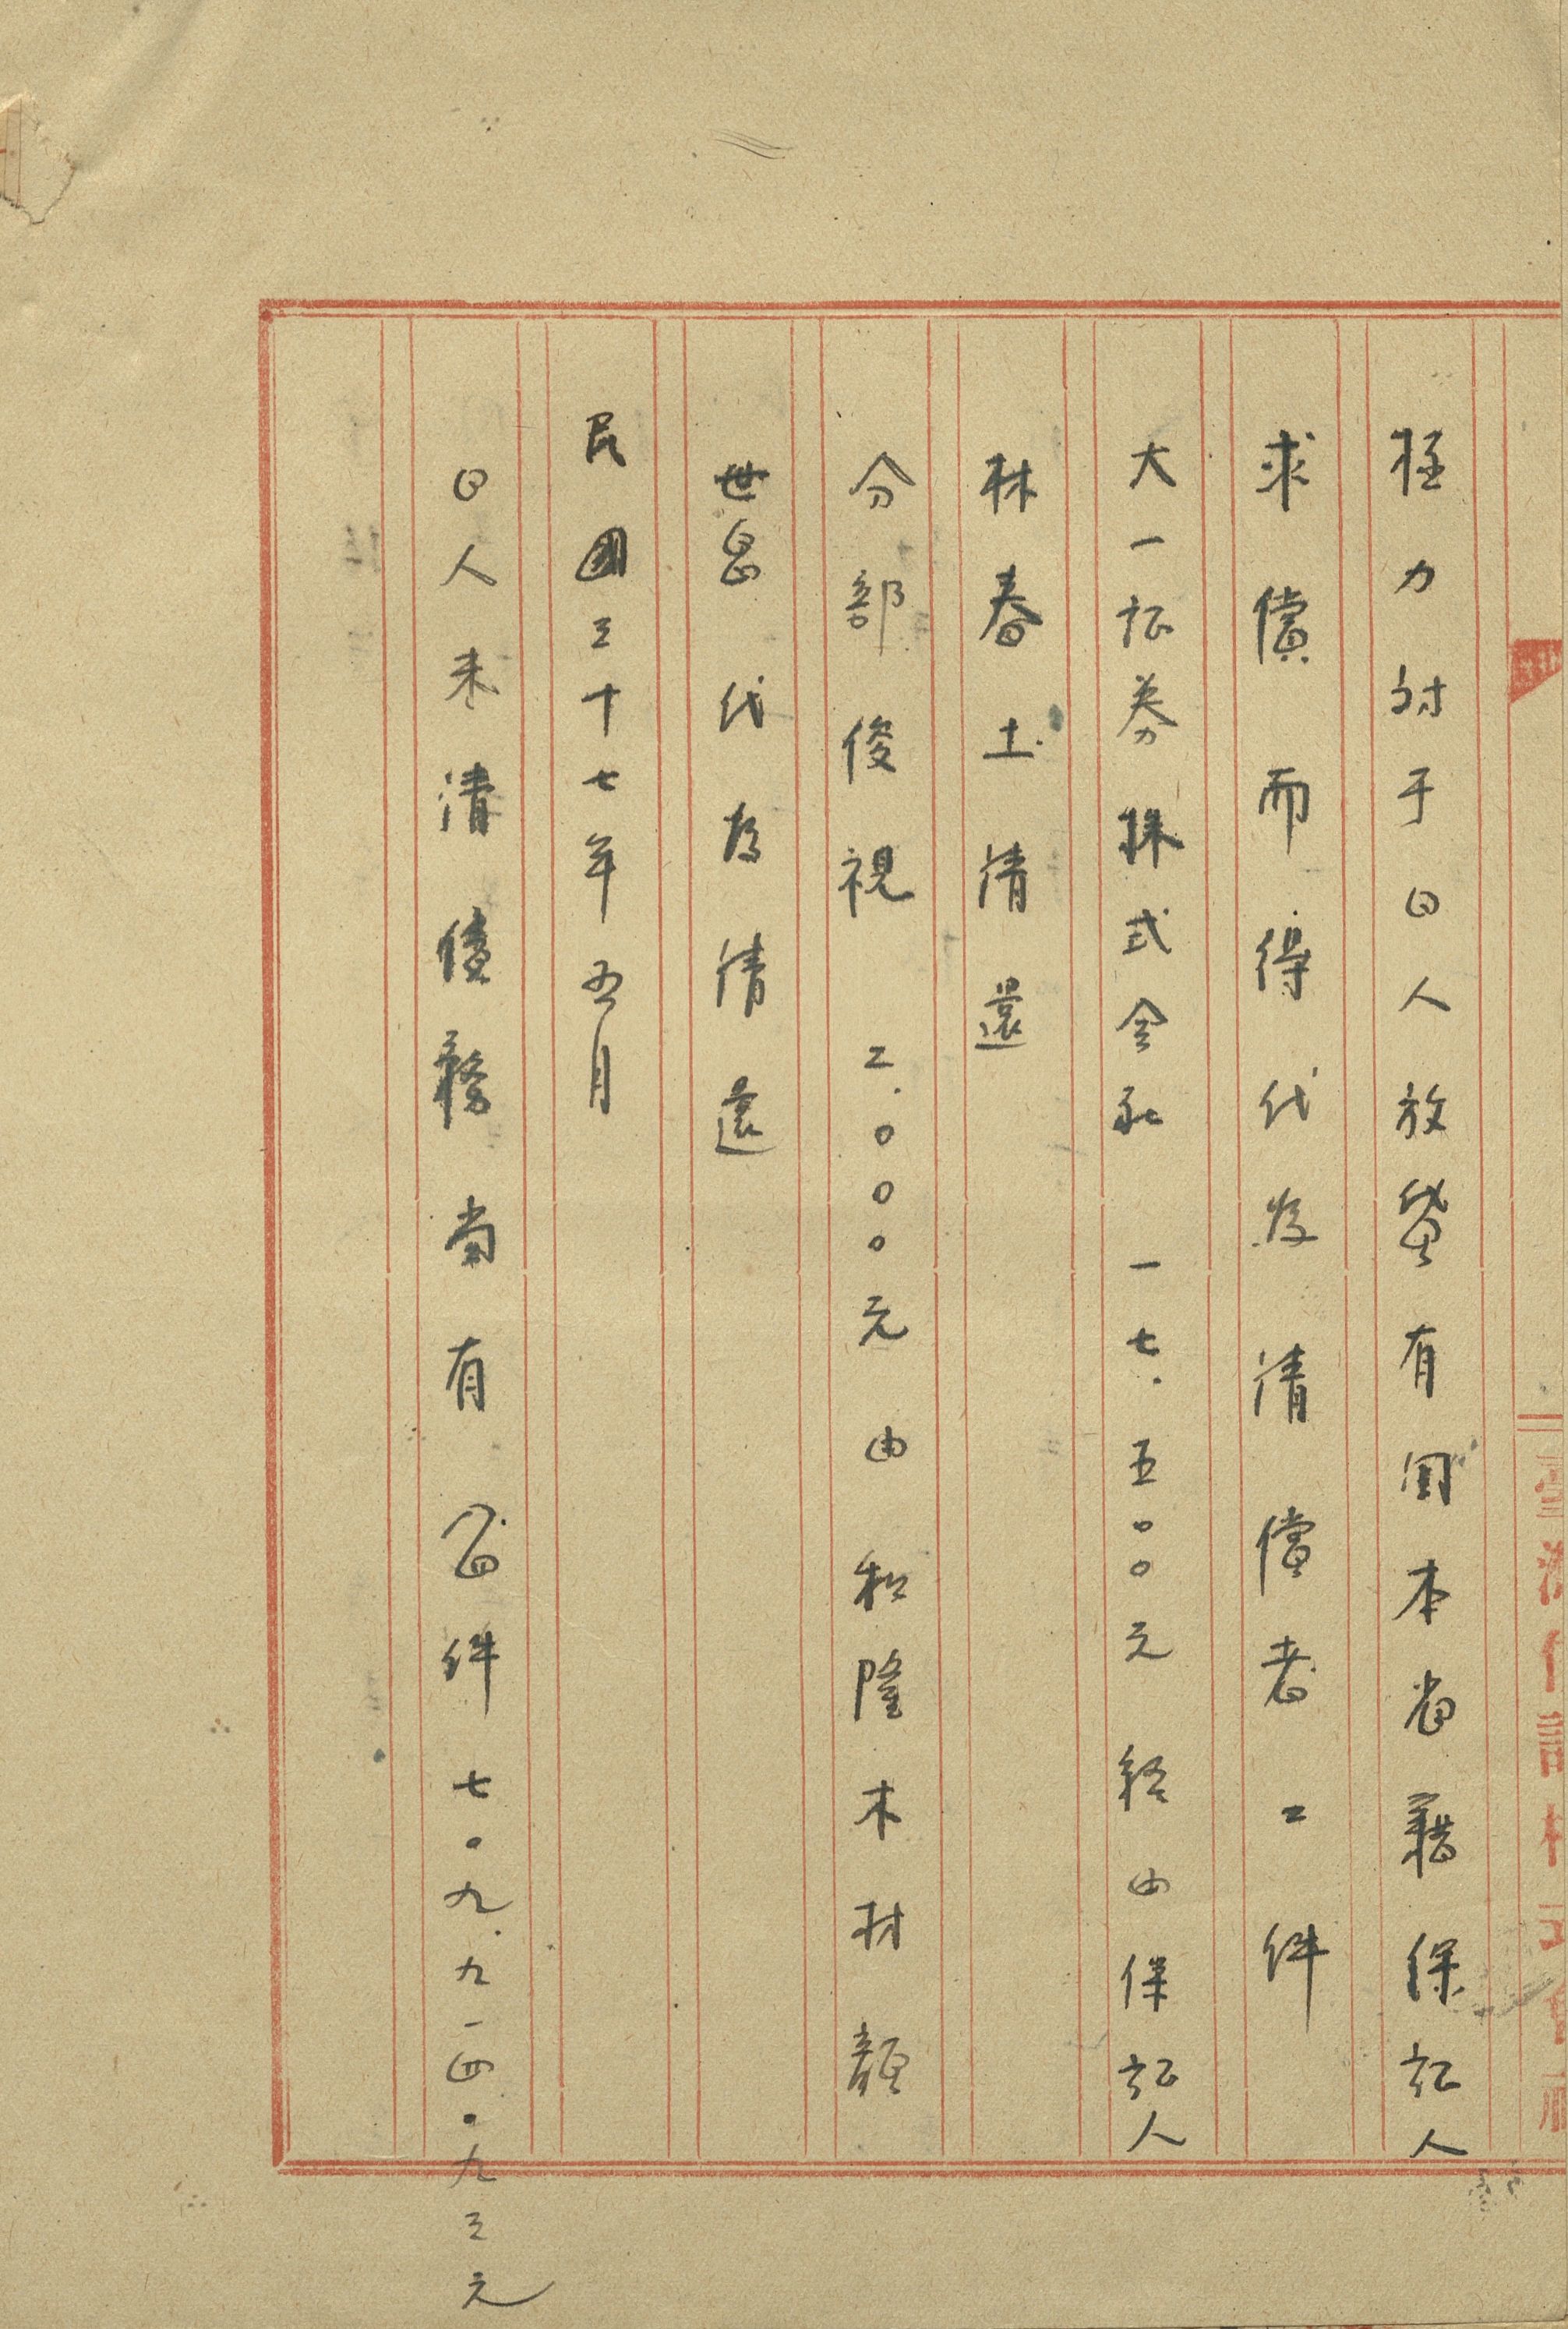 臺灣信託株式會社
極力対于日人放貸有因本省籍保証人
求償而得代為清償者二件
大一証券株式会社 一七.五〇〇元 経由保証人
林春土清還
分部俊視 二.〇〇〇元 由松隆木材顏
世昌代為清還
民國三十七年五月
日人未清債務尚有八四件七〇九.九一四.九三元